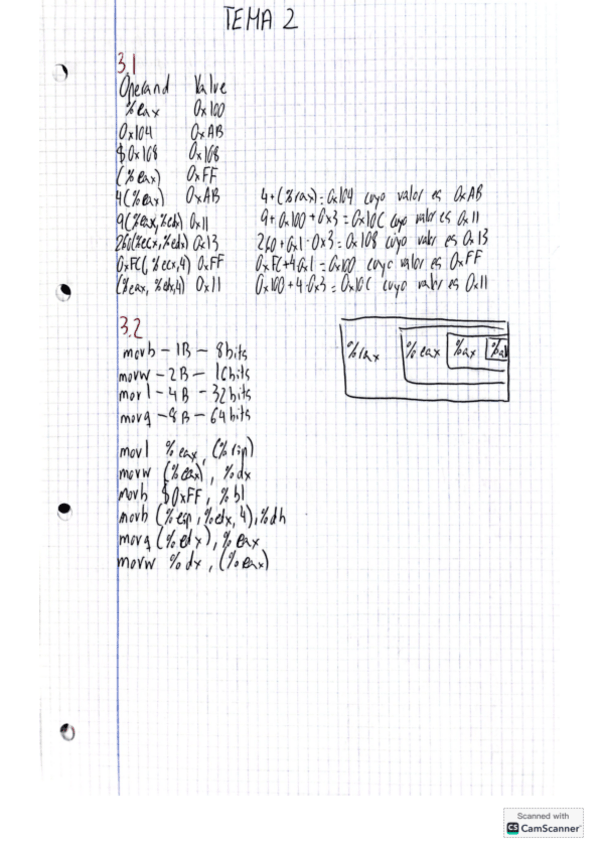 TEMA 2
3.1
Operand Value
%eax 0x100
0x104 0xAB
$0x108 0x108
(%eax) 0xFF
4(%eax) 0xAB 4+(%rax)=0x104 cuyo valor es 0xAB
9(%eax,%edx) 0x11 9+0x100+0x3=0x10C cuyo valor es 0x11
260(%ecx,%edx) 0x13 260+0x1+0x3=0x108 cuyo valor es 0x13
0xFC(,%ecx,4) 0xFF 0xFC+4·0x1=0x100 cuyo valor es 0xFF
(%eax,%edx,4) 0x11 0x100+4·0x3=0x10C cuyo valor es 0x11
3.2
movb-1B-8bits
movw-2B-16bits
movl-4B-32bits
movq-8B-64bits
%rax %eax %ax %al
movl %eax,(%rip)
movw (%eax), %dx
movb $0xFF, %bl
movb (%eip,%edx,4),%dh
movq (%edx),%eax
movw %dx,(%eax)
Scanned with
CS CamScanner